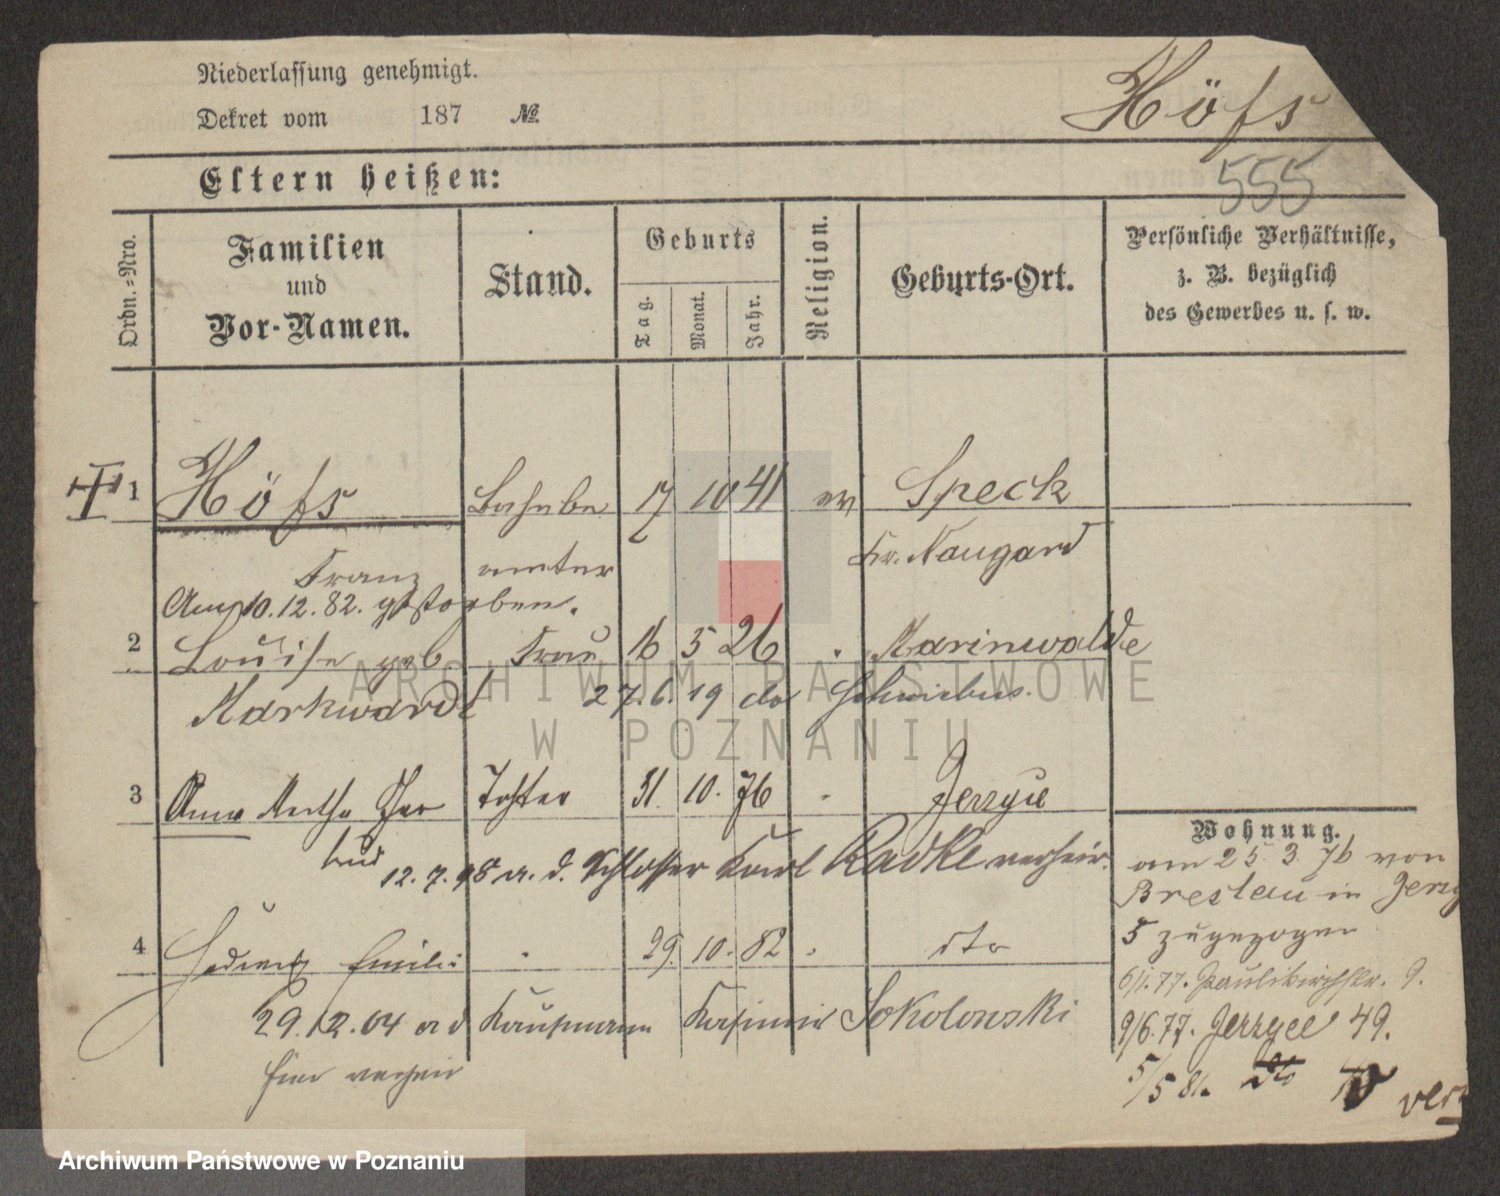 Niederlassung genehmigt.
Dekret vom 187 №
Höfs
555
Eltern heißen:
Ordn.-Nro.
Familien
und
Vor-Namen.
Stand.
Geburts
Tag.
Monat.
Jahr.
Religion.
Geburts-Ort.
Persönliche Verhältnisse,
z. B. bezüglich
des Gewerbes u. s. w.
1 Höfs Bahnbe 17 10 41 ev Speck
Franz amter Kr. Naugard
Am 10.12.82. gestorben.
2 Louise geb Frau 16 5 26 Marinwalde
Markwardt 27.6.19 do Schwiebus.
3 Anna Martha Ger Tochter 31. 10. 76 Jerzyce
trud 12.7.98 a. d. Schlosser Karl Radke verheir.
4 Hedwig Emilie 29. 10. 82 dto
29.12.04 a d Kaufmann Kasimir Sokolowski
hier verheir
Wohnung.
am 25.3.76 von
Breslau in Jerzy
5 zugezogen
6/1.77. Paulikirchstr. 9.
9/6.77. Jerzyce 49.
5/5 81. dto
ARCHIWUM PAŃSTWOWE
W POZNANIU
Archiwum Państwowe w Poznaniu